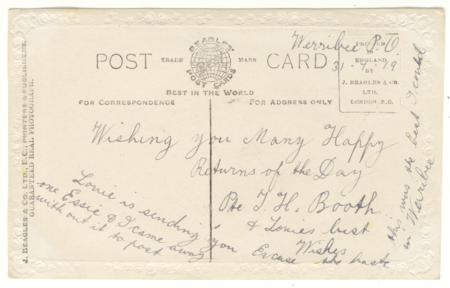 Werribee P.O.
31-7-19
POST
TRADE
BEAGLES
POST CARDS
MARK
CARD
BEST IN THE WORLD
FOR CORRESPONDENCE
FOR ADDRESS ONLY
PRINTED
IN
ENGLAND
BY
J. BEAGLES & CO.
LTD.
LONDON E.C.
J. BEAGLES & CO. LTD., E.C., PRINTERS & PUBLISHERS.
GUARANTEED REAL PHOTOGRAPH.
Wishing you Many Happy
Returns of the Day
Pte T. H. Booth
& Louies best
Wishes
Excuse the haste
Louie is sending you
one Essie & I came away
with out it to post
this was the best I could
in Werribee